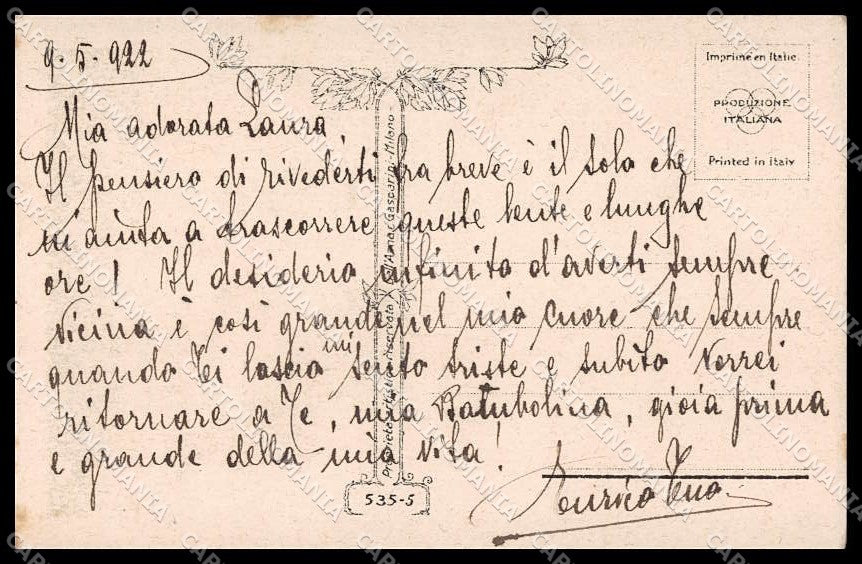 9·5·922
Mia adorata Laura,
Il pensiero di rivederti fra breve è il solo che
mi aiuta a trascorrere queste lente e lunghe
ore! Il desiderio infinito d'averti sempre
vicina è così grande nel mio cuore che sempre
quando Ti lascio mi sento triste e subito vorrei
ritornare a Te, mia Batubolina, gioia prima
e grande della mia vita!
Enrico Tuo
Imprimé en Italie
PRODUZIONE
ITALIANA
Printed in Italy
Proprietà artistica riservata Dell'Anna & Gasparini - Milano -
535-5
CARTOLINOMANIA